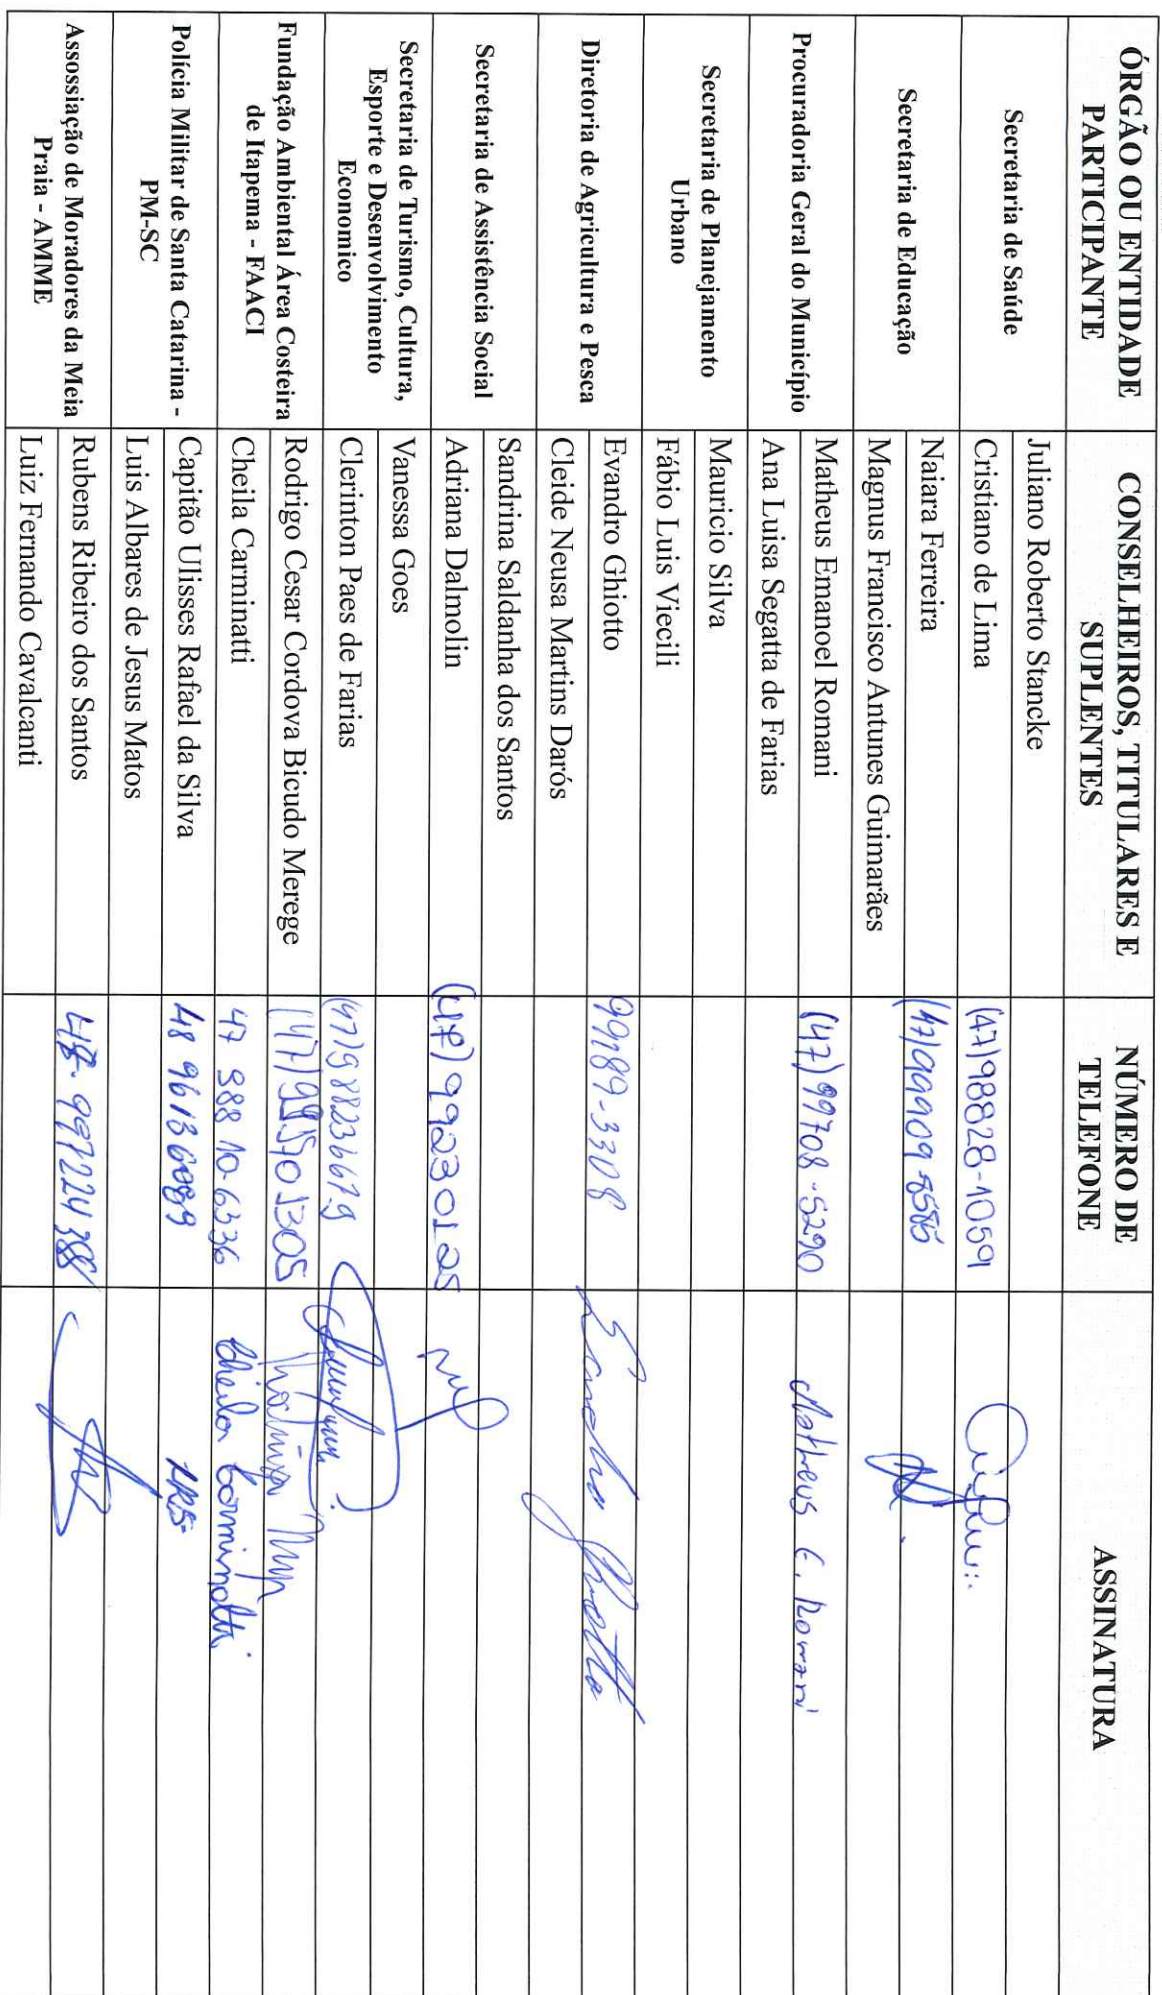 ÓRGÃO OU ENTIDADE
PARTICIPANTE
CONSELHEIROS, TITULARES E
SUPLENTES
NÚMERO DE
TELEFONE
ASSINATURA
Secretaria de Saúde
Juliano Roberto Stancke
Cristiano de Lima
(47)98828-1059
Secretaria de Educação
Naiara Ferreira
Magnus Francisco Antunes Guimarães
Procuradoria Geral do Município
Matheus Emanoel Romani
(47)99708-5290
Matheus E. Romani
Ana Luisa Segatta de Farias
Secretaria de Planejamento
Urbano
Mauricio Silva
Fábio Luis Viecili
Diretoria de Agricultura e Pesca
Evandro Ghiotto
99189-3308
Evandro Ghiotto
Cleide Neusa Martins Darós
Secretaria de Assistência Social
Sandrina Saldanha dos Santos
Adriana Dalmolin
(47) 99230125
Secretaria de Turismo, Cultura,
Esporte e Desenvolvimento
Economico
Vanessa Goes
Clerinton Paes de Farias
Fundação Ambiental Área Costeira
de Itapema - FAACI
Rodrigo Cesar Cordova Bicudo Merege
Cheila Carminatti
47 988 10-6336
Cheila Carminatti
Polícia Militar de Santa Catarina -
PM-SC
Capitão Ulisses Rafael da Silva
Luis Albares de Jesus Matos
Assossiação de Moradores da Meia
Praia - AMME
Rubens Ribeiro dos Santos
Luiz Fernando Cavalcanti